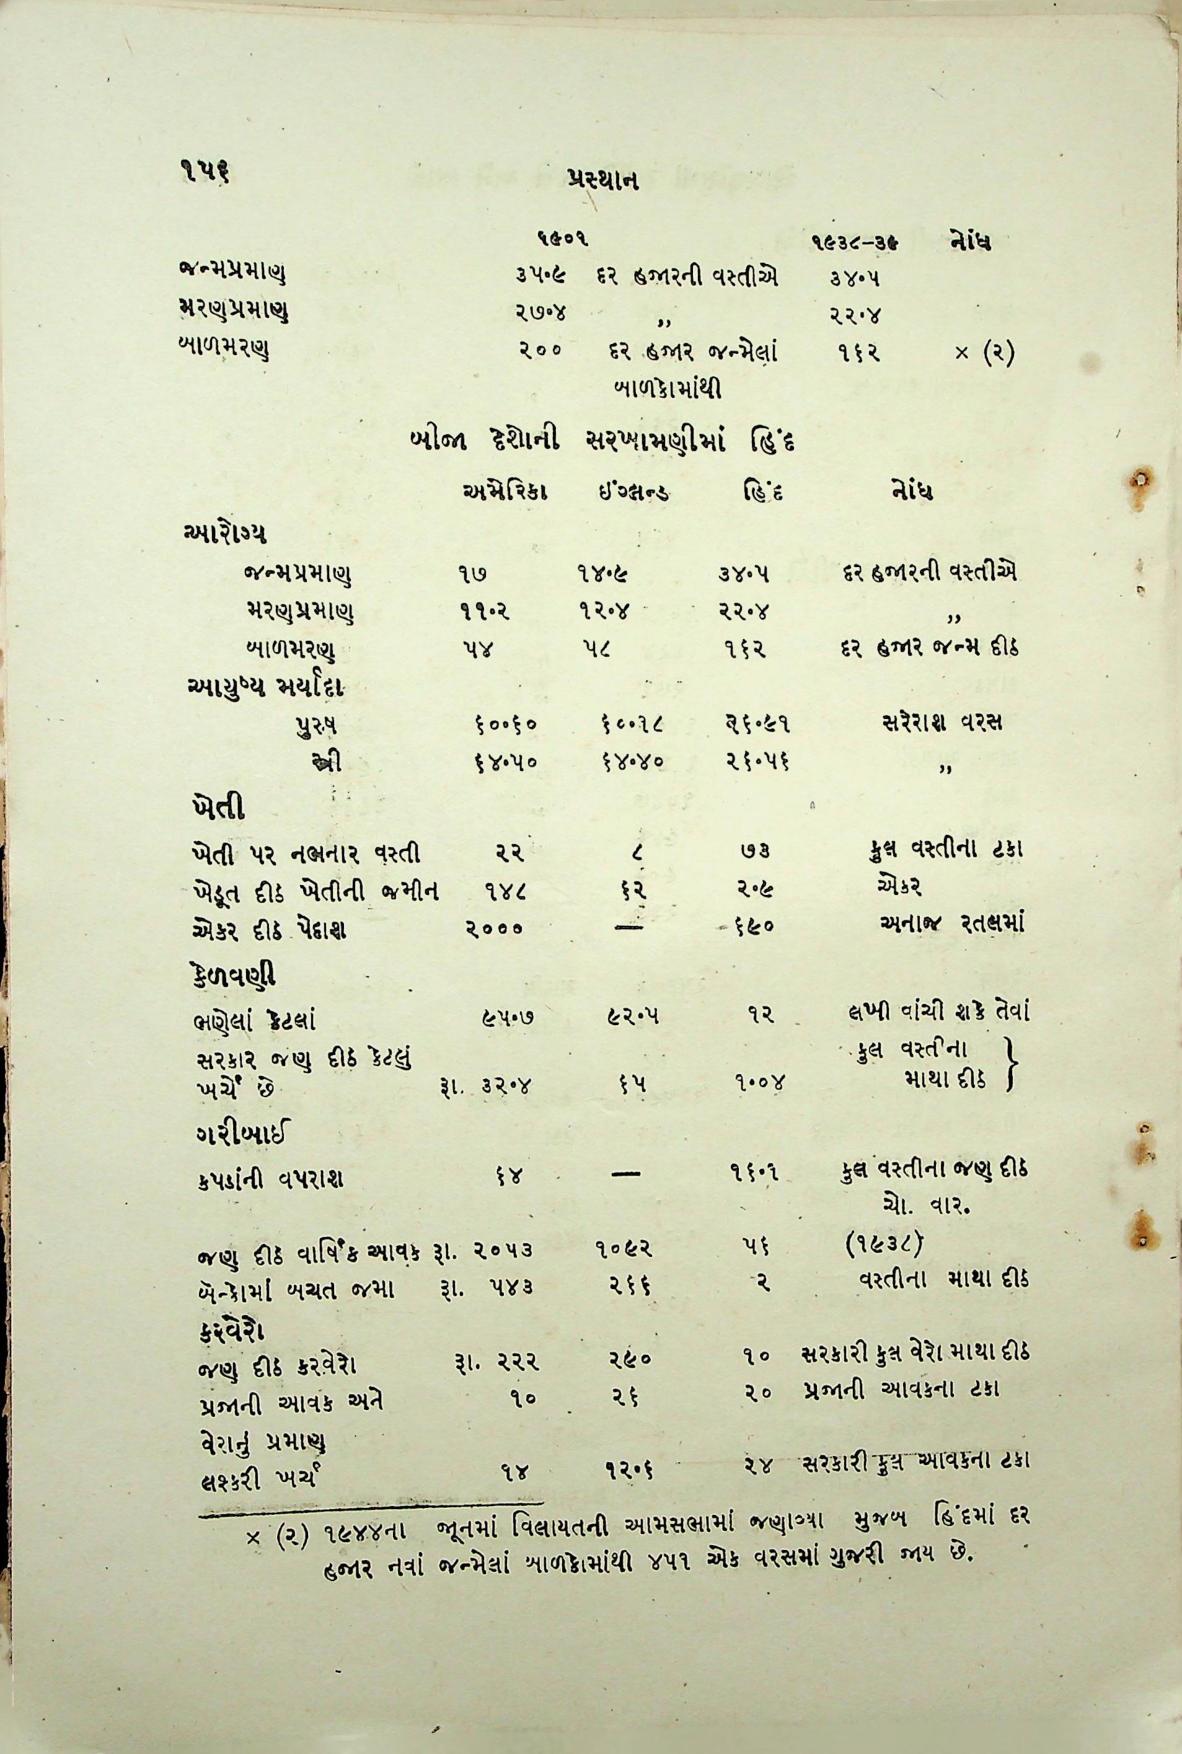 ૧૫૬
પ્રસ્થાન
૧૯૦૧ ૧૯૩૮–૩૯ નોંધ
જન્મપ્રમાણ ૩૫·૯ દર હજારની વસ્તીએ ૩૪·૫
મરણપ્રમાણ ૨૭·૪ ,, ૨૨·૪
બાળમરણ ૨૦૦ દર હજાર જન્મેલાં ૧૬૨ × (૨)
બાળકોમાંથી
બીજા દેશોની સરખામણીમાં હિંદ
અમેરિકા ઇંગ્લન્ડ હિંદ નોંધ
આરોગ્ય
જન્મપ્રમાણ ૧૭ ૧૪·૯ ૩૪·૫ દર હજારની વસ્તીએ
મરણપ્રમાણ ૧૧·૨ ૧૨·૪ ૨૨·૪ ,,
બાળમરણ ૫૪ ૫૮ ૧૬૨ દર હજાર જન્મ દીઠ
આયુષ્ય મર્યાદા
પુરુષ ૬૦·૬૦ ૬૦·૧૮ ૨૬·૯૧ સરેરાશ વરસ
સ્ત્રી ૬૪·૫૦ ૬૪·૪૦ ૨૬·૫૬ ,,
ખેતી
ખેતી પર નભનાર વસ્તી ૨૨ ૮ ૭૩ કુલ વસ્તીના ટકા
ખેડૂત દીઠ ખેતીની જમીન ૧૪૮ ૬૨ ૨·૯ એકર
એકર દીઠ પેદાશ ૨૦૦૦ — ૬૯૦ અનાજ રતલમાં
કેળવણી
ભણેલાં કેટલાં ૯૫·૭ ૯૨·૫ ૧૨ લખી વાંચી શકે તેવાં
સરકાર જણ દીઠ કેટલું કુલ વસ્તીના }
ખર્ચે છે રૂા. ૩૨·૪ ૬૫ ૧·૦૪ માથા દીઠ
ગરીબાઈ
કપડાંની વપરાશ ૬૪ — ૧૬·૧ કુલ વસ્તીના જણ દીઠ
ચો. વાર.
જણ દીઠ વાર્ષિક આવક રૂા. ૨૦૫૩ ૧૦૯૨ ૫૬ (૧૯૩૮)
બેન્કોમાં બચત જમા રૂા. ૫૪૩ ૨૬૬ ૨ વસ્તીના માથા દીઠ
કરવેરો
જણ દીઠ કરવેરો રૂા. ૨૨૨ ૨૯૦ ૧૦ સરકારી કુલ વેરો માથા દીઠ
પ્રજાની આવક અને ૧૦ ૨૬ ૨૦ પ્રજાની આવકના ટકા
વેરાનું પ્રમાણ
લશ્કરી ખર્ચ ૧૪ ૧૨·૬ ૨૪ સરકારી કુલ આવકના ટકા
× (૨) ૧૯૪૪ના જૂનમાં વિલાયતની આમસભામાં જણાવ્યા મુજબ હિંદમાં દર
હજાર નવાં જન્મેલાં બાળકોમાંથી ૪૫૧ એક વરસમાં ગુજરી જાય છે.